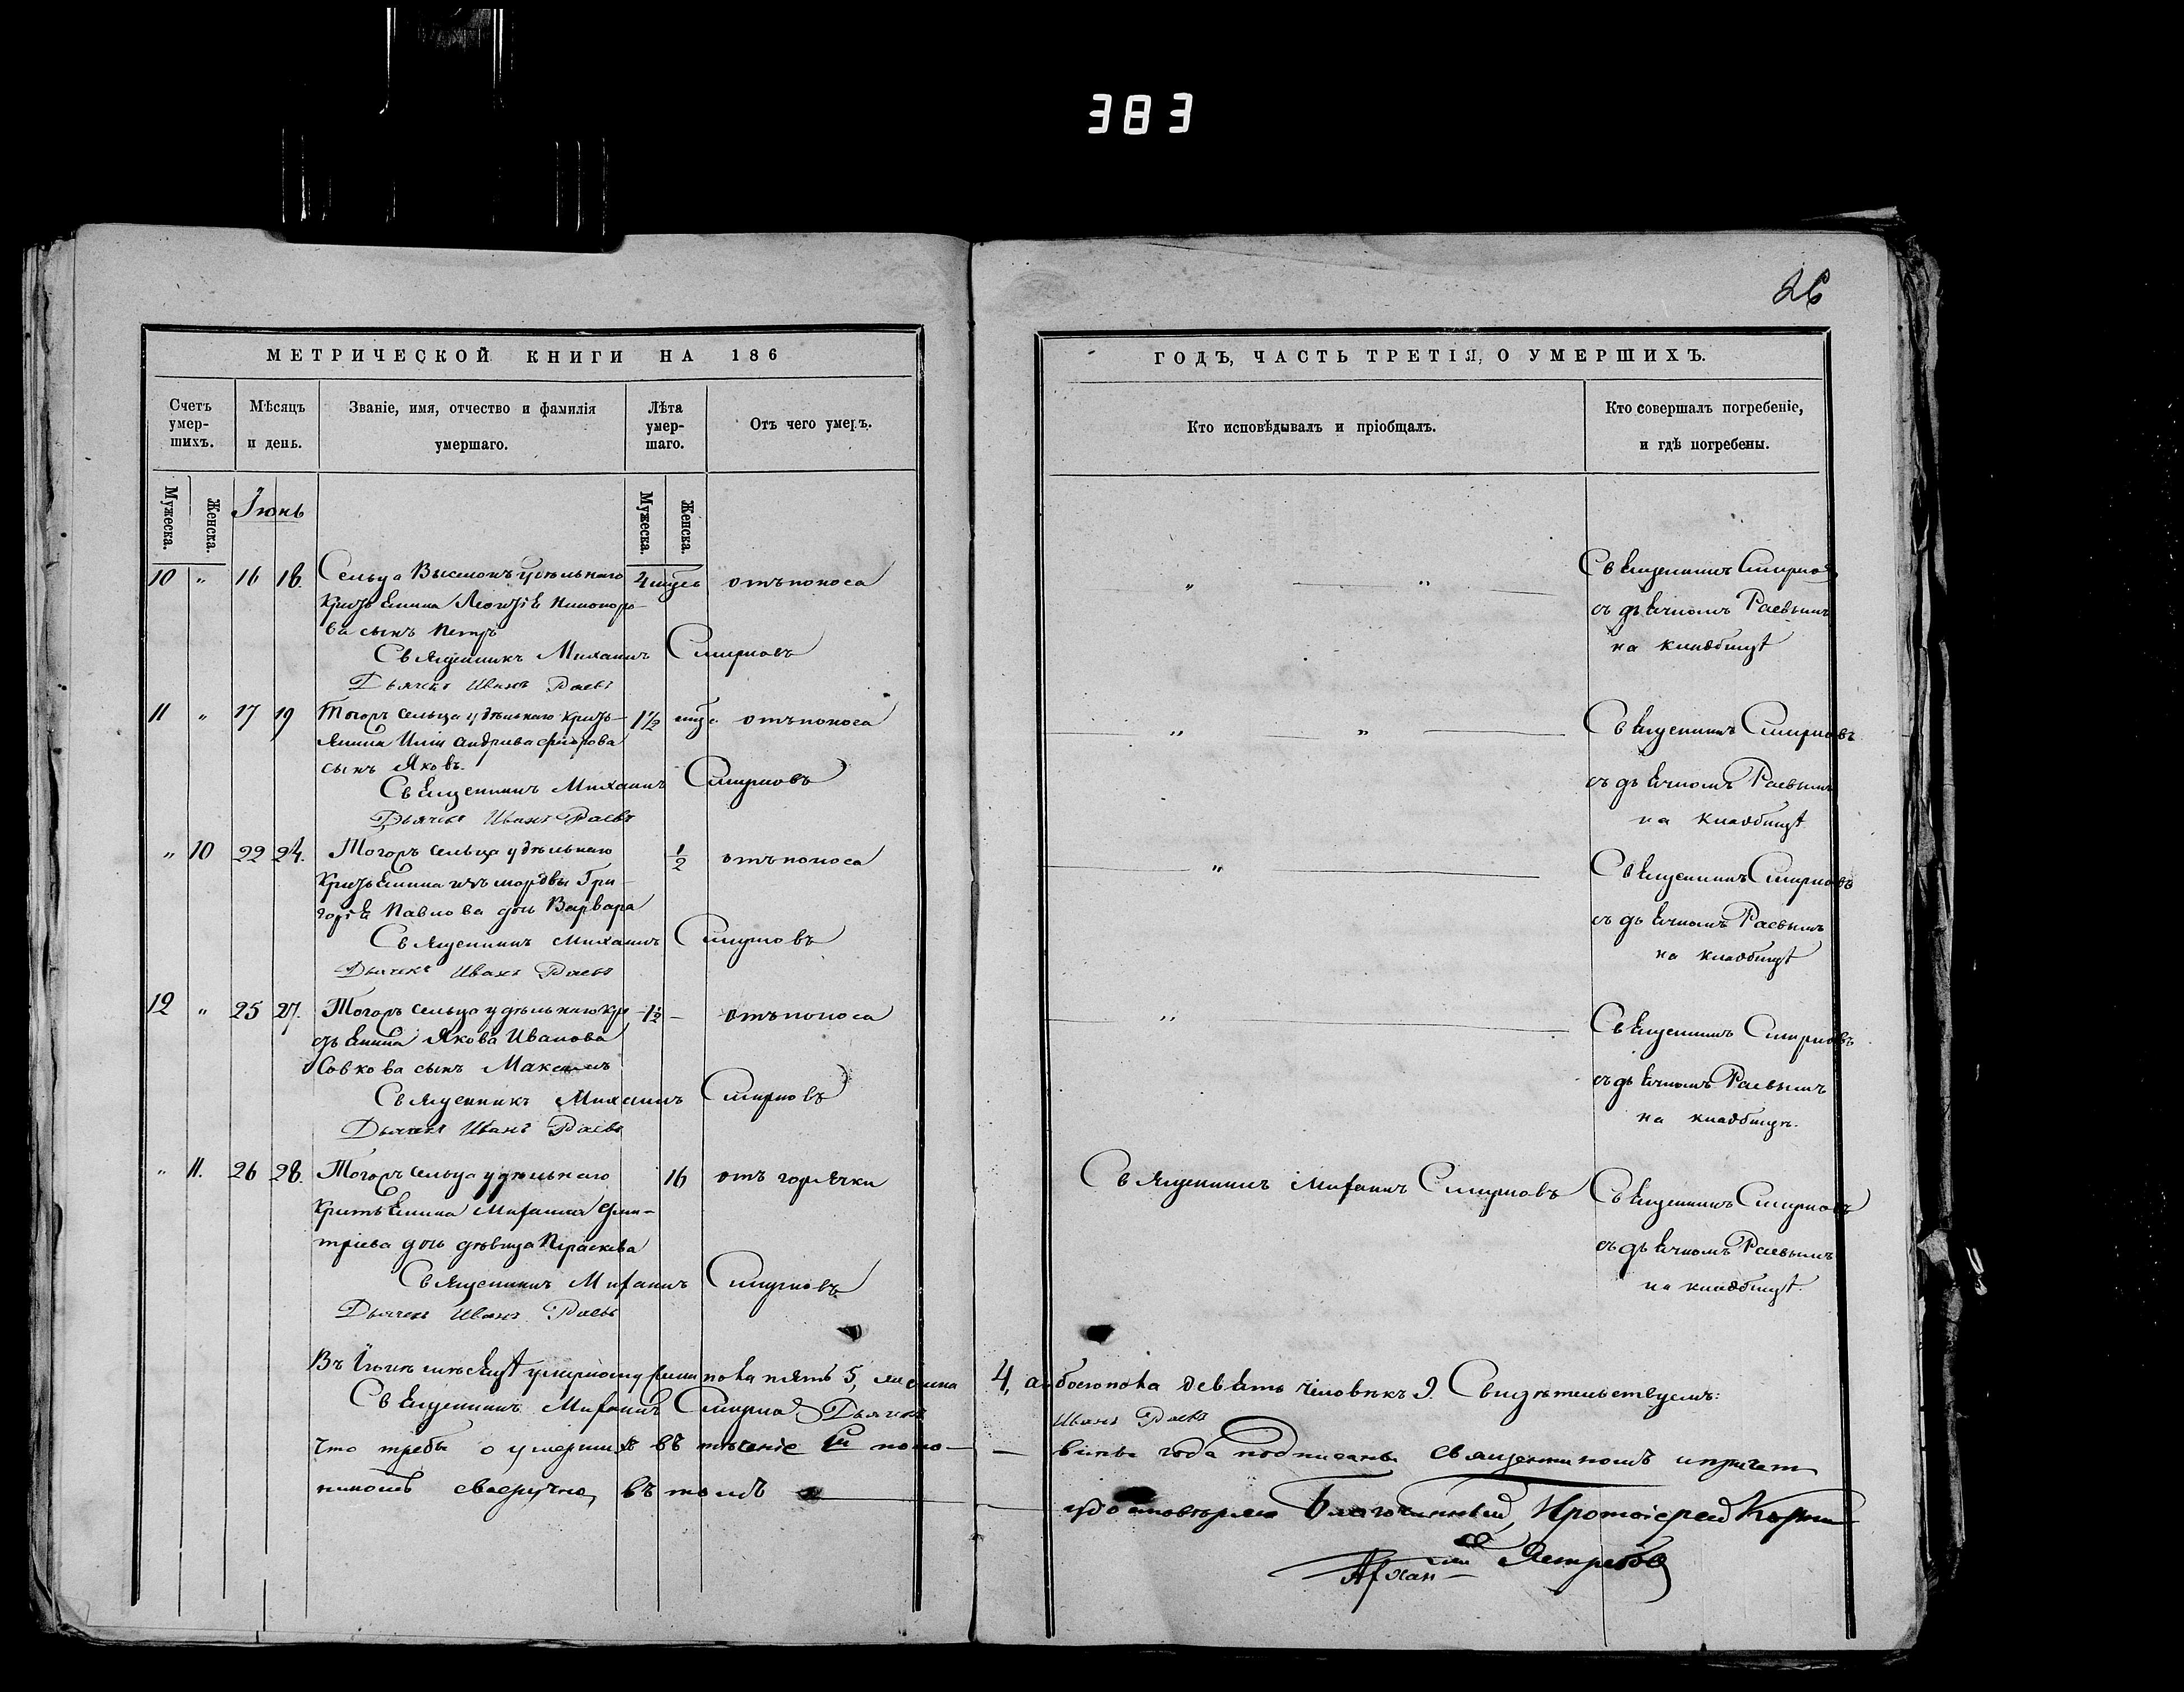 383
26
МЕТРИЧЕСКОЙ КНИГИ НА 186
ГОДЪ, ЧАСТЬ ТРЕТІЯ, О УМЕРШИХЪ.
Счетъ умер-шихъ.
Мѣсяцъ и день.
Званіе, имя, отчество и фамилія умершаго.
Лѣта умер-шаго.
Отъ чего умеръ.
Кто исповѣдывалъ и пріобщалъ.
Кто совершалъ погребеніе, и гдѣ погребены.
Мужеска.
Женска.
Іюнь
Мужеска.
Женска.
10 " 16 18. Сельца удѣльнаго 4 отъ поноса " " Священникъ Смирновъ
съ дьячкомъ Раевымъ
ва сынъ Петръ
на кладбищѣ
Священникъ Михаилъ Смирновъ
Дьячекъ Иванъ Раевъ
11 " 17 19 Тогожъ сельца удѣльнаго кресть- 1 1/2 отъ поноса " " Священникъ Смирновъ
янина Андреева
сынъ Яковъ.
Священникъ Михаилъ Смирновъ
съ дьячкомъ Раевымъ
Дьячекъ Иванъ Раевъ
на кладбищѣ
" 10 22 24. Тогожъ сельца удѣльнаго 1/2 отъ поноса " Священникъ Смирновъ
крестьянина изъ мордвы Гри-
горія Павлова дочь Варвара
съ дьячкомъ Раевымъ
Священникъ Михаилъ Смирновъ
на кладбищѣ
Дьячекъ Иванъ Раевъ
12 " 25 27. Тогожъ сельца удѣльнаго кре 1 1/2 - отъ поноса " Священникъ Смирновъ
стьянина Якова Иванова
сынъ Максимъ
съ дьячкомъ Раевымъ
Священникъ Михаилъ Смирновъ
на кладбищѣ.
Дьячекъ Иванъ Раевъ
" 11. 26 28. Тогожъ сельца удѣльнаго 16 отъ горячки Священникъ Михаилъ Смирновъ Священникъ Смирновъ
крестьянина Михаила Дми-
тріева дочь дѣвица Параскева
съ дьячкомъ Раевымъ
Священникъ Михаилъ Смирновъ
на кладбищѣ.
Дьячекъ Иванъ Раевъ
Въ Іюнѣ мѣсяцѣ пола пять 5, 4, а обоего пола девять человѣкъ 9. Свидѣтельствуемъ:
Священникъ Михаилъ Смирновъ Дьячекъ Иванъ Раевъ
Что требы о умершихъ въ теченіе 1й поло- вины года подписаны священникомъ и причет
никомъ своеручно, въ томъ удостовѣряю Благочинный, Протоіерей
Ястребов